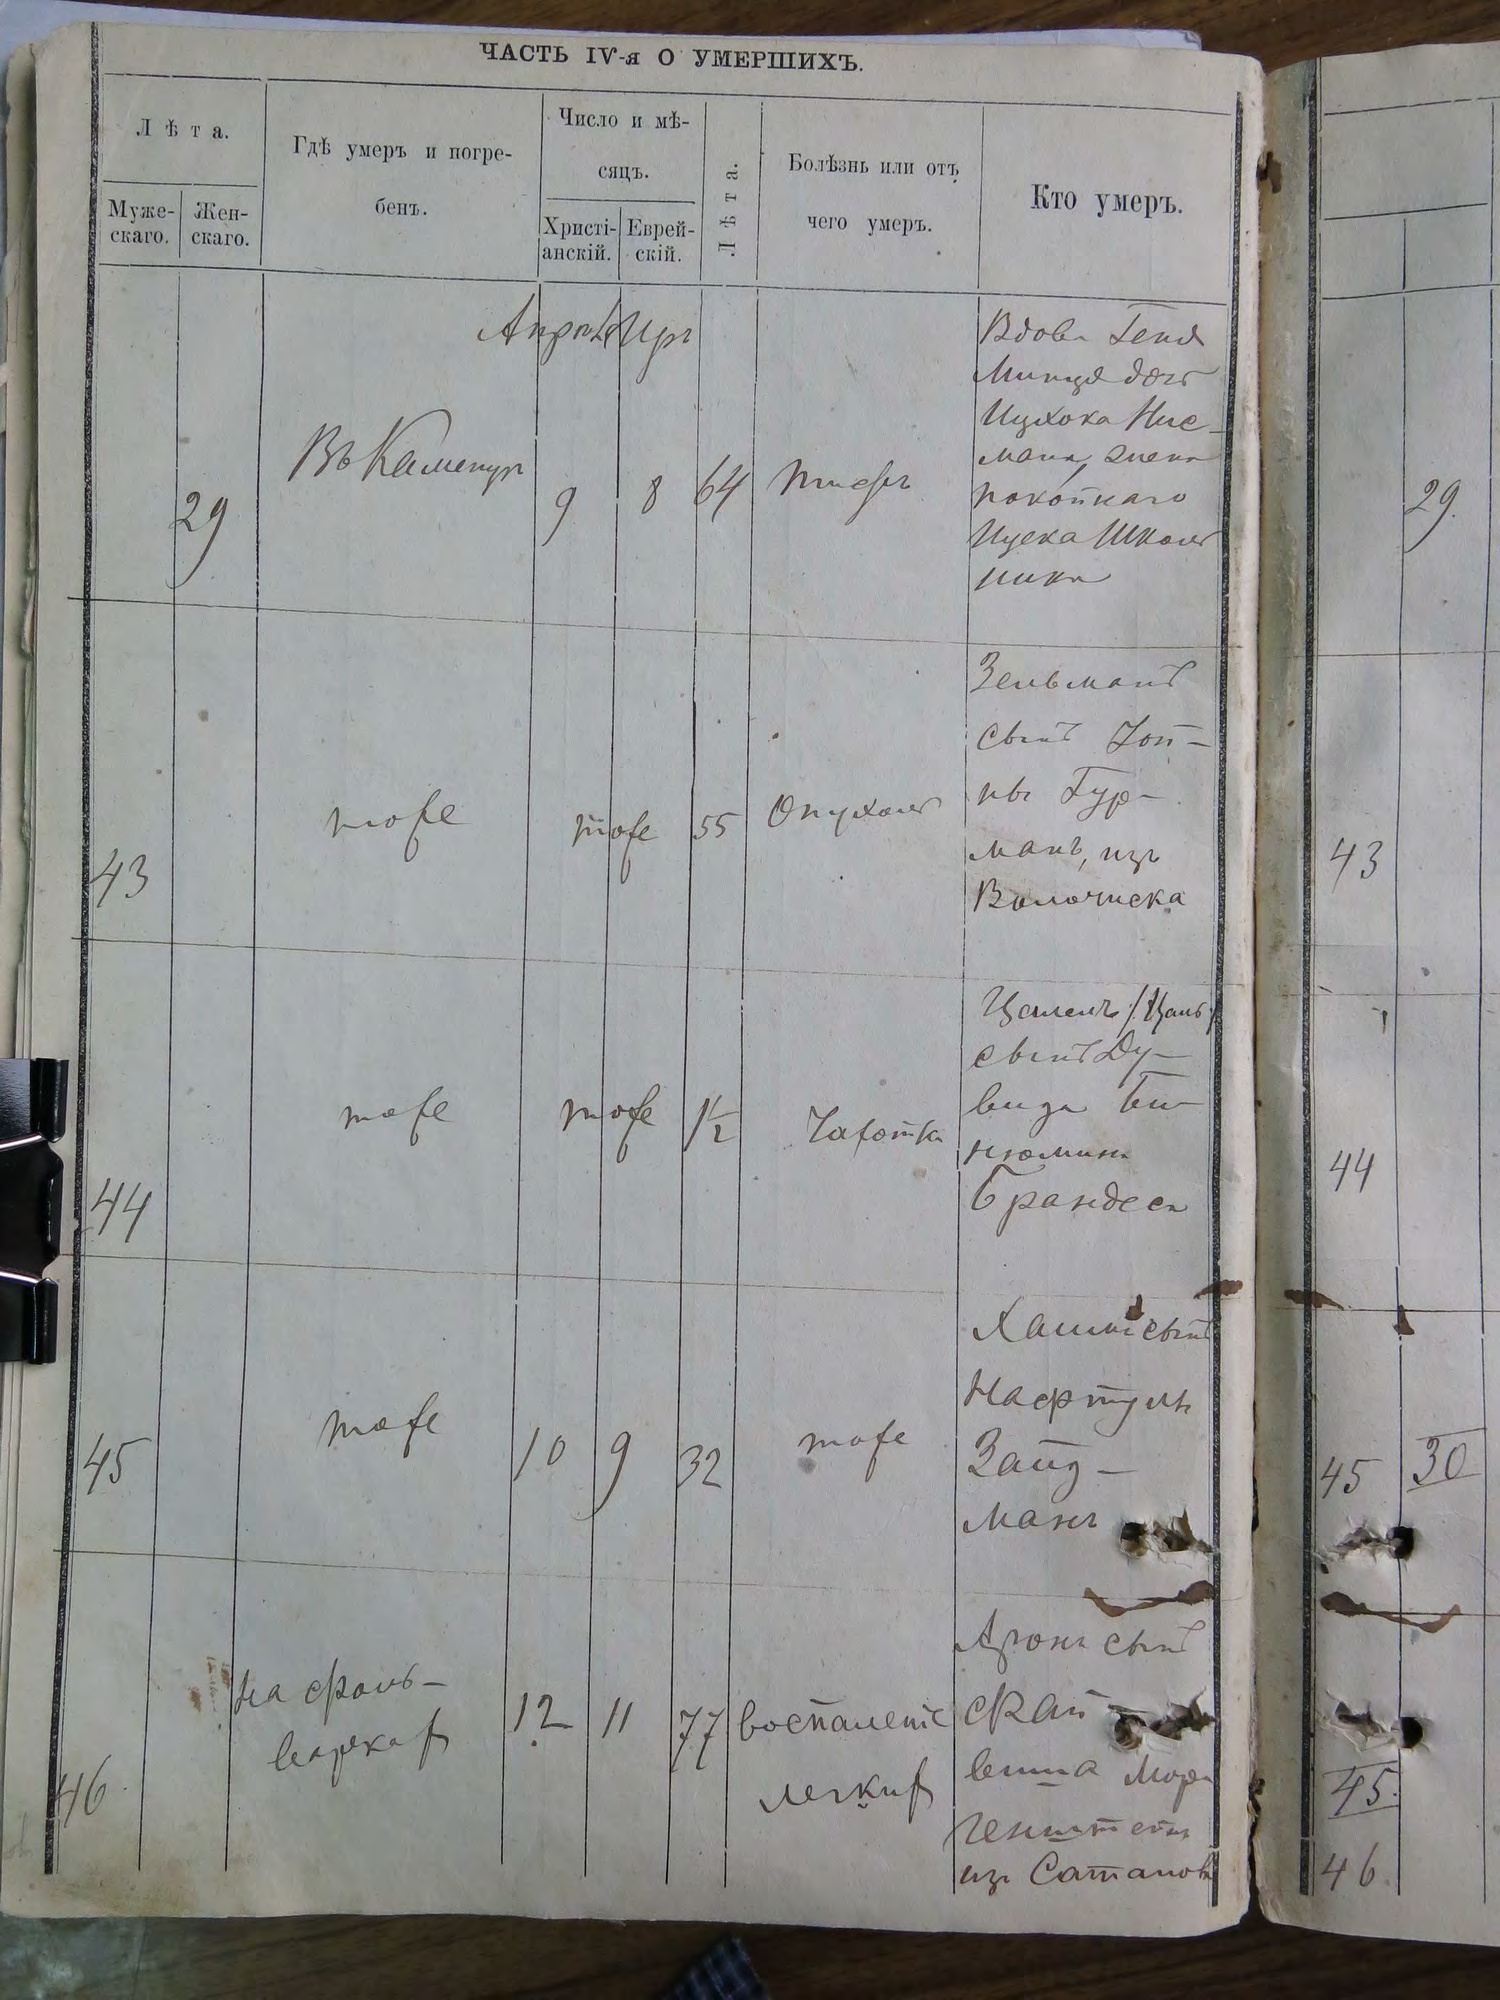 ЧАСТЬ IV-я О УМЕРШИХЪ.
Лѣта.
Муже-
скаго.
Жен-
скаго.
Гдѣ умеръ и погре-
бенъ.
Число и мѣ-
сяцъ.
Христі-
анскій.
Еврей-
скій.
Лѣта.
Болѣзнь или отъ
чего умеръ.
Кто умеръ.
29
Въ Каменцѣ
9
8
64
тифъ
Вдова Геня
Минця дочь
Ицхока Нис-
мана, жена
покойнаго
Ицека Школь
ника
29.
43
тоже
тоже
55
Опухоль
Зельманъ
сынъ Іой-
ны Гур-
манъ, изъ
Волочиска
43
44
тоже
тоже
1½
Чахотка
сынъ Ду-
вида Би
нюмина
Брандеса
44
45
тоже
10
9
32
тоже
сынъ
Нафтулы
Зайд-
манъ
45
30
46
на фоль-
варкахъ
12
11
77
воспаленіе
легкихъ
Аронъ сынъ
Шай
генштейнъ
изъ Сатанова
45.
46